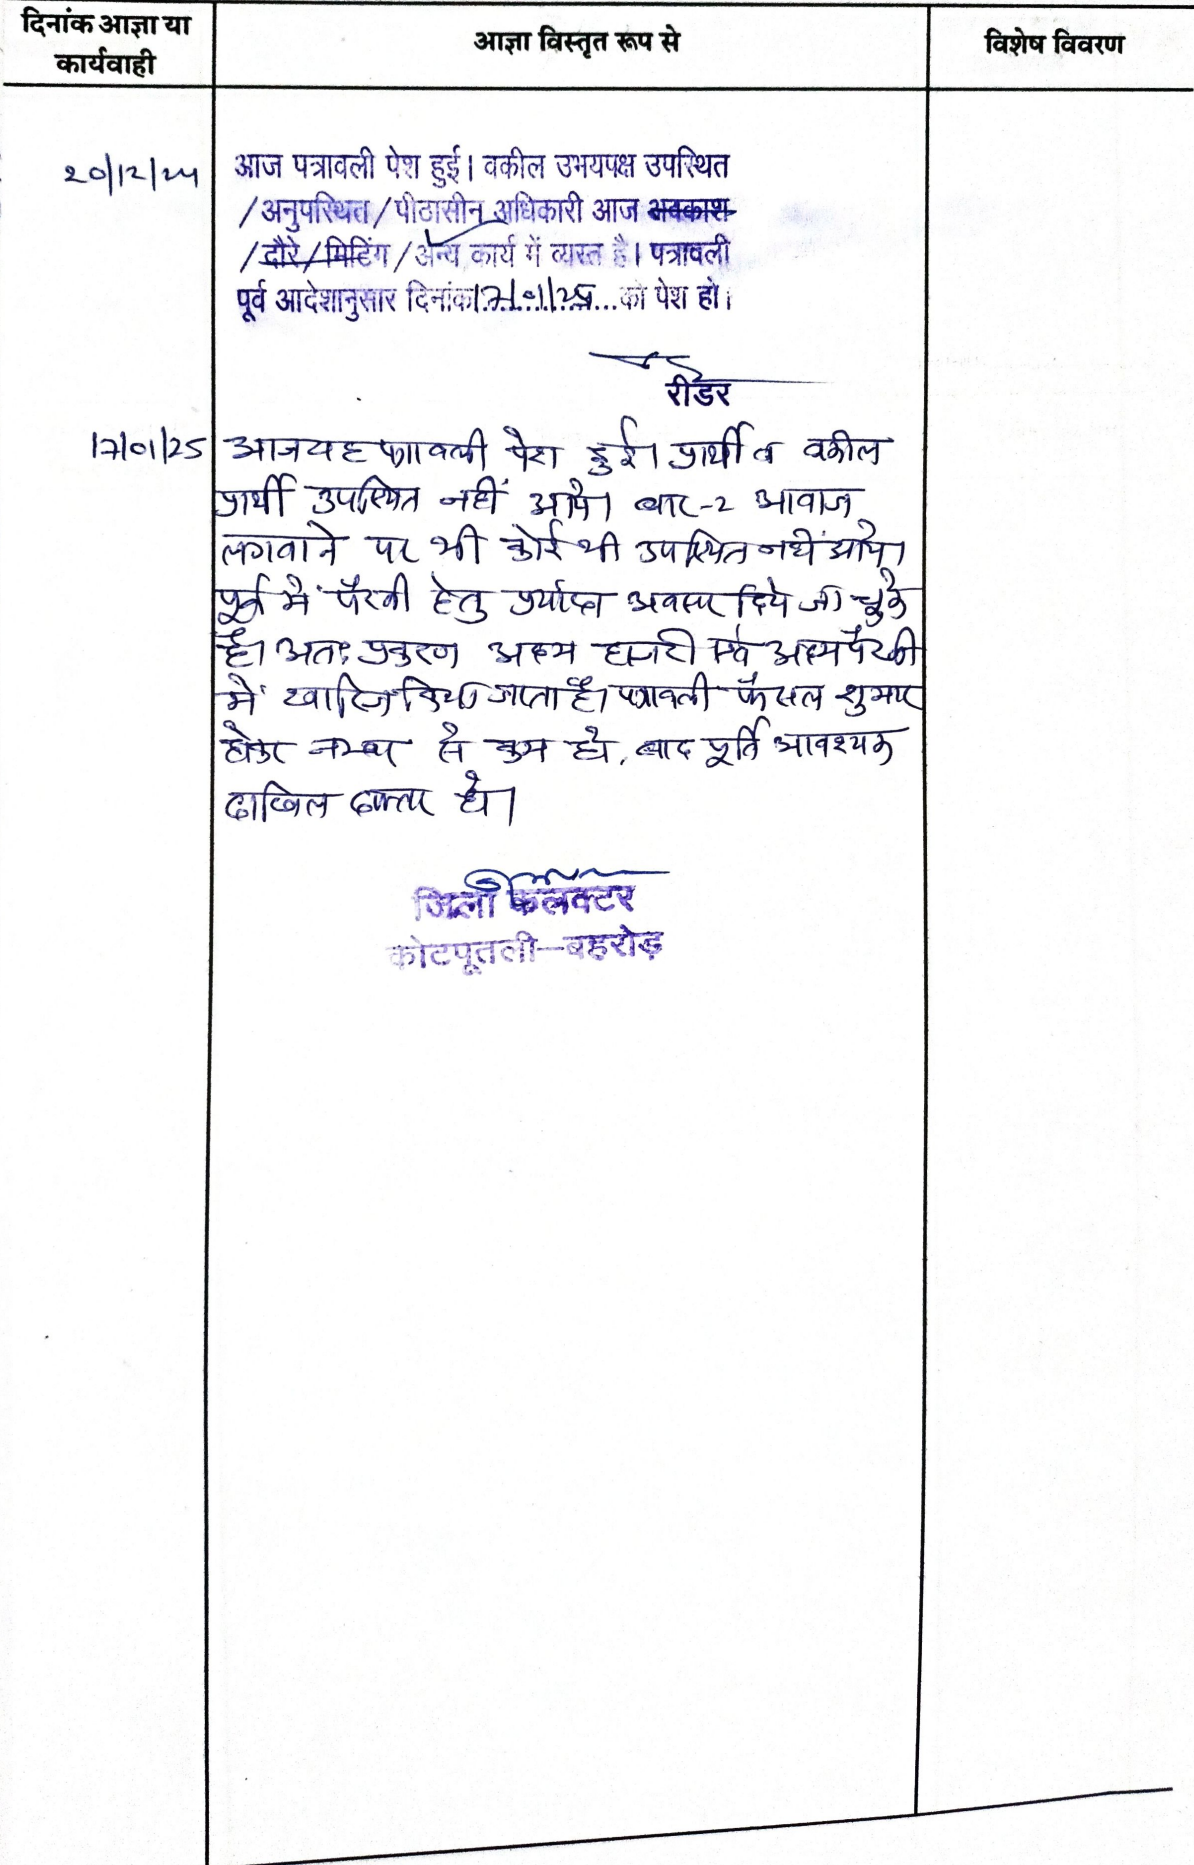 दिनांक आज्ञा या
कार्यवाही
आज्ञा विस्तृत रूप से
विशेष विवरण
20/12/24
आज पत्रावली पेश हुई। वकील उभयपक्ष उपस्थित
/अनुपस्थित/पीठासीन अधिकारी आज अवकाश
/दौरे/मिटिंग/अन्य कार्य में व्यस्त है। पत्रावली
पूर्व आदेशानुसार दिनांक 17/01/25...को पेश हो।
रीडर
17/01/25
आज यह पत्रावली पेश हुई। प्रार्थी व वकील
प्रार्थी उपस्थित नहीं आये। बार-2 आवाज
लगवाने पर भी कोई भी उपस्थित नहीं आये।
पूर्व में पैरवी हेतु पर्याप्त अवसर दिये जा चुके
है। अतः प्रकरण अदम हाजरी एवं अदम पैरवी
में खारिज किया जाता है। पत्रावली फैसल शुमार
होकर नम्बर से कम हो, बाद पूर्ति आवश्यक
दाखिल दफ्तर हो।
जिला कलक्टर
कोटपूतली-बहरोड़